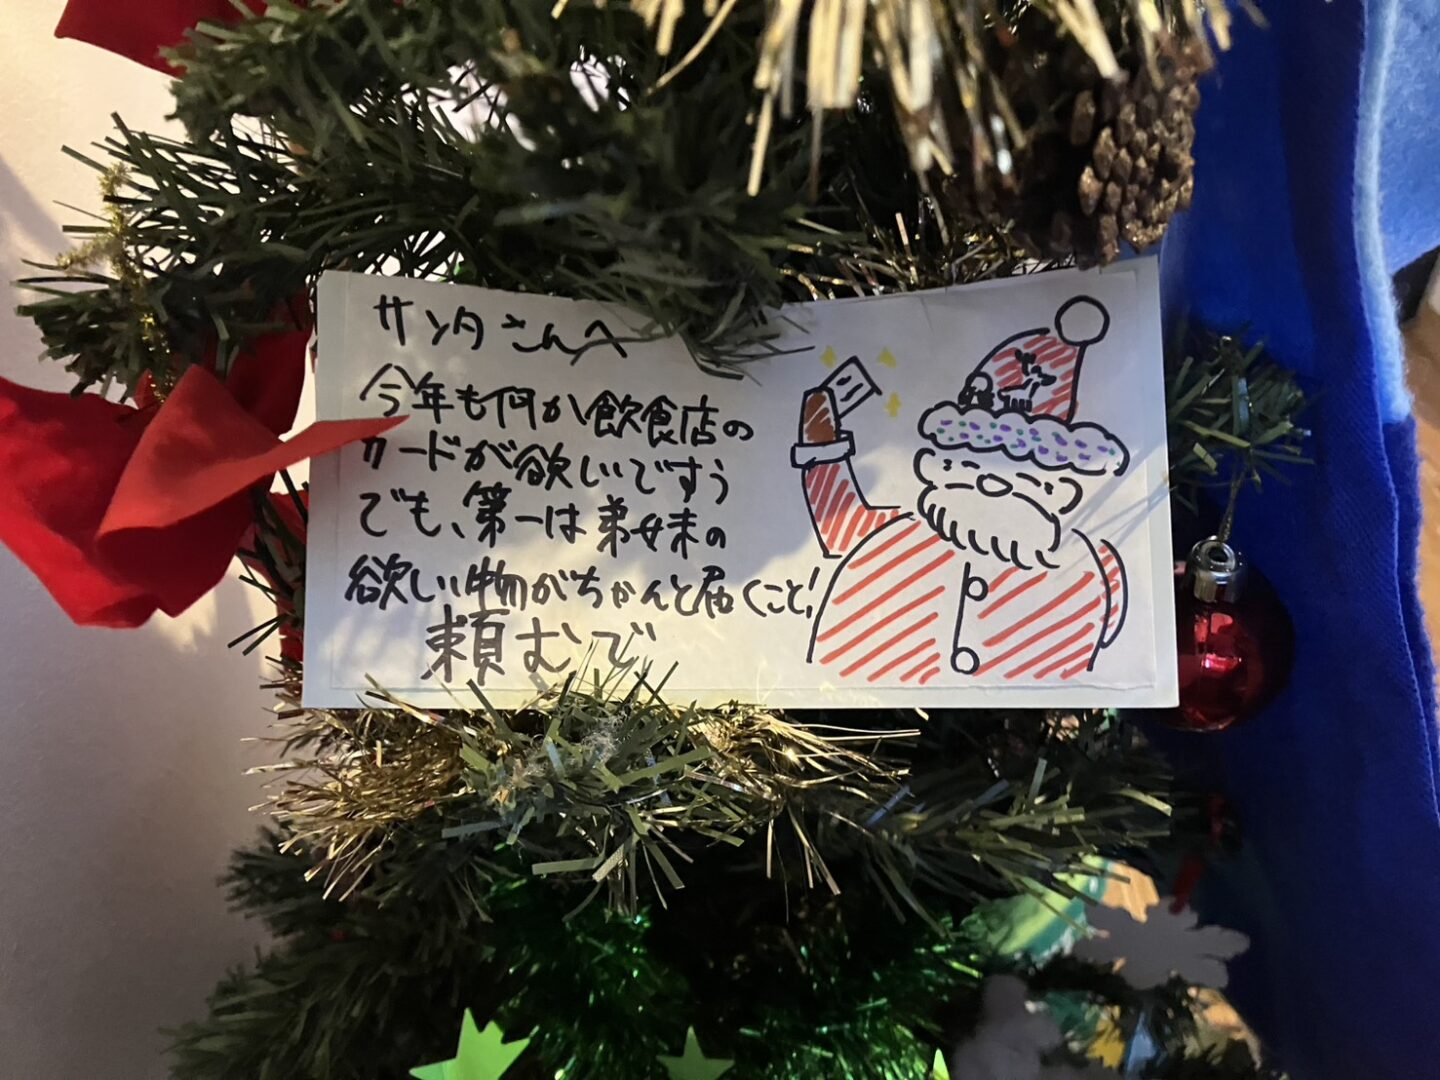 サンタさんへ
今年も何か飲食店の
カードが欲しいですぅ
でも、第一は弟妹の
欲しい物がちゃんと届くこと!
頼むで